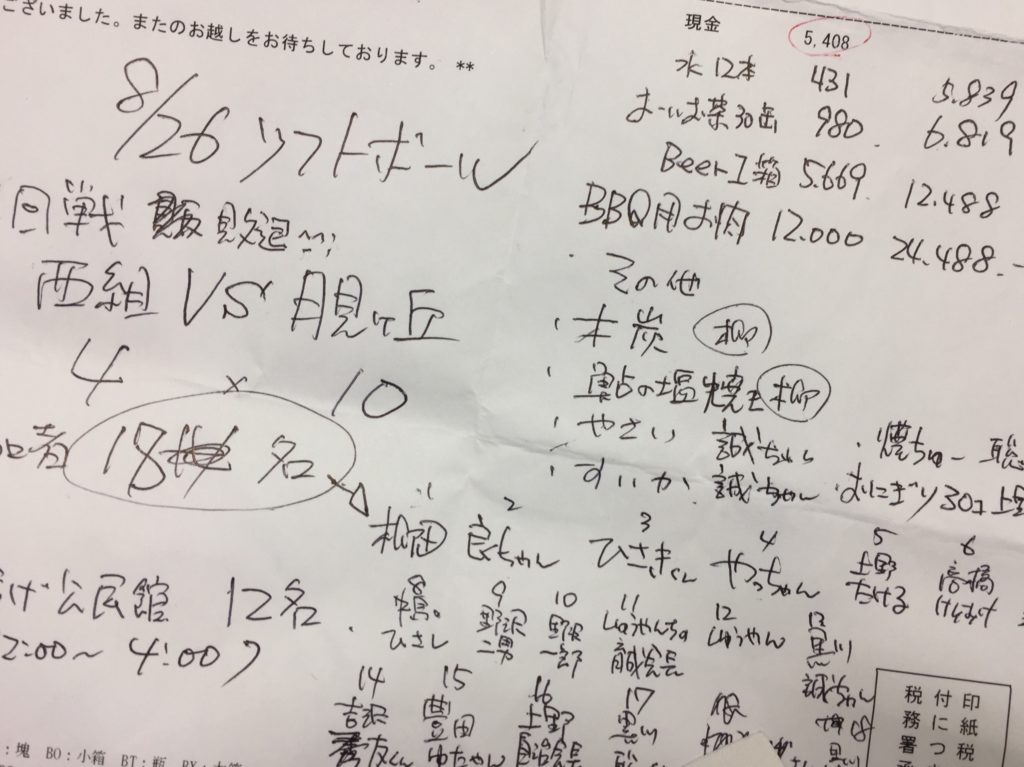 ございました。またのお越しをお待ちしております。 **
現金 5,408
水12本 431 5.839
おーいお茶30缶 980. 6.819
Beer 1箱 5.669. 12.488
BBQ用お肉 12.000 24.488.-
その他
・木炭 柳
・鮎の塩焼き 柳
・やさい 誠ちゃん ・焼ちゅー
・すいか 誠ちゃん おにぎり30コ 上野
8/26 ソフトボール
回戦 敗退
西組 VS 月見ヶ丘
4 × 10
18 名
公民館 12名
2:00〜4:00
1 柳田
2 良ちゃん
3 ひさきくん
4 やっちゃん
5 上野 たける
6 高橋 けんすけ
8 ひさし
9 野沢 二男
10 野沢 一郎
11
12 しゅうやん
13 黒川 誠ちゃん
14 吉沢 秀友くん
15 豊田 ゆたちゃん
16 上野
17 黒川
18 黒川
印紙税
付につ
税務署
: 塊 BO: 小箱 BT: 瓶